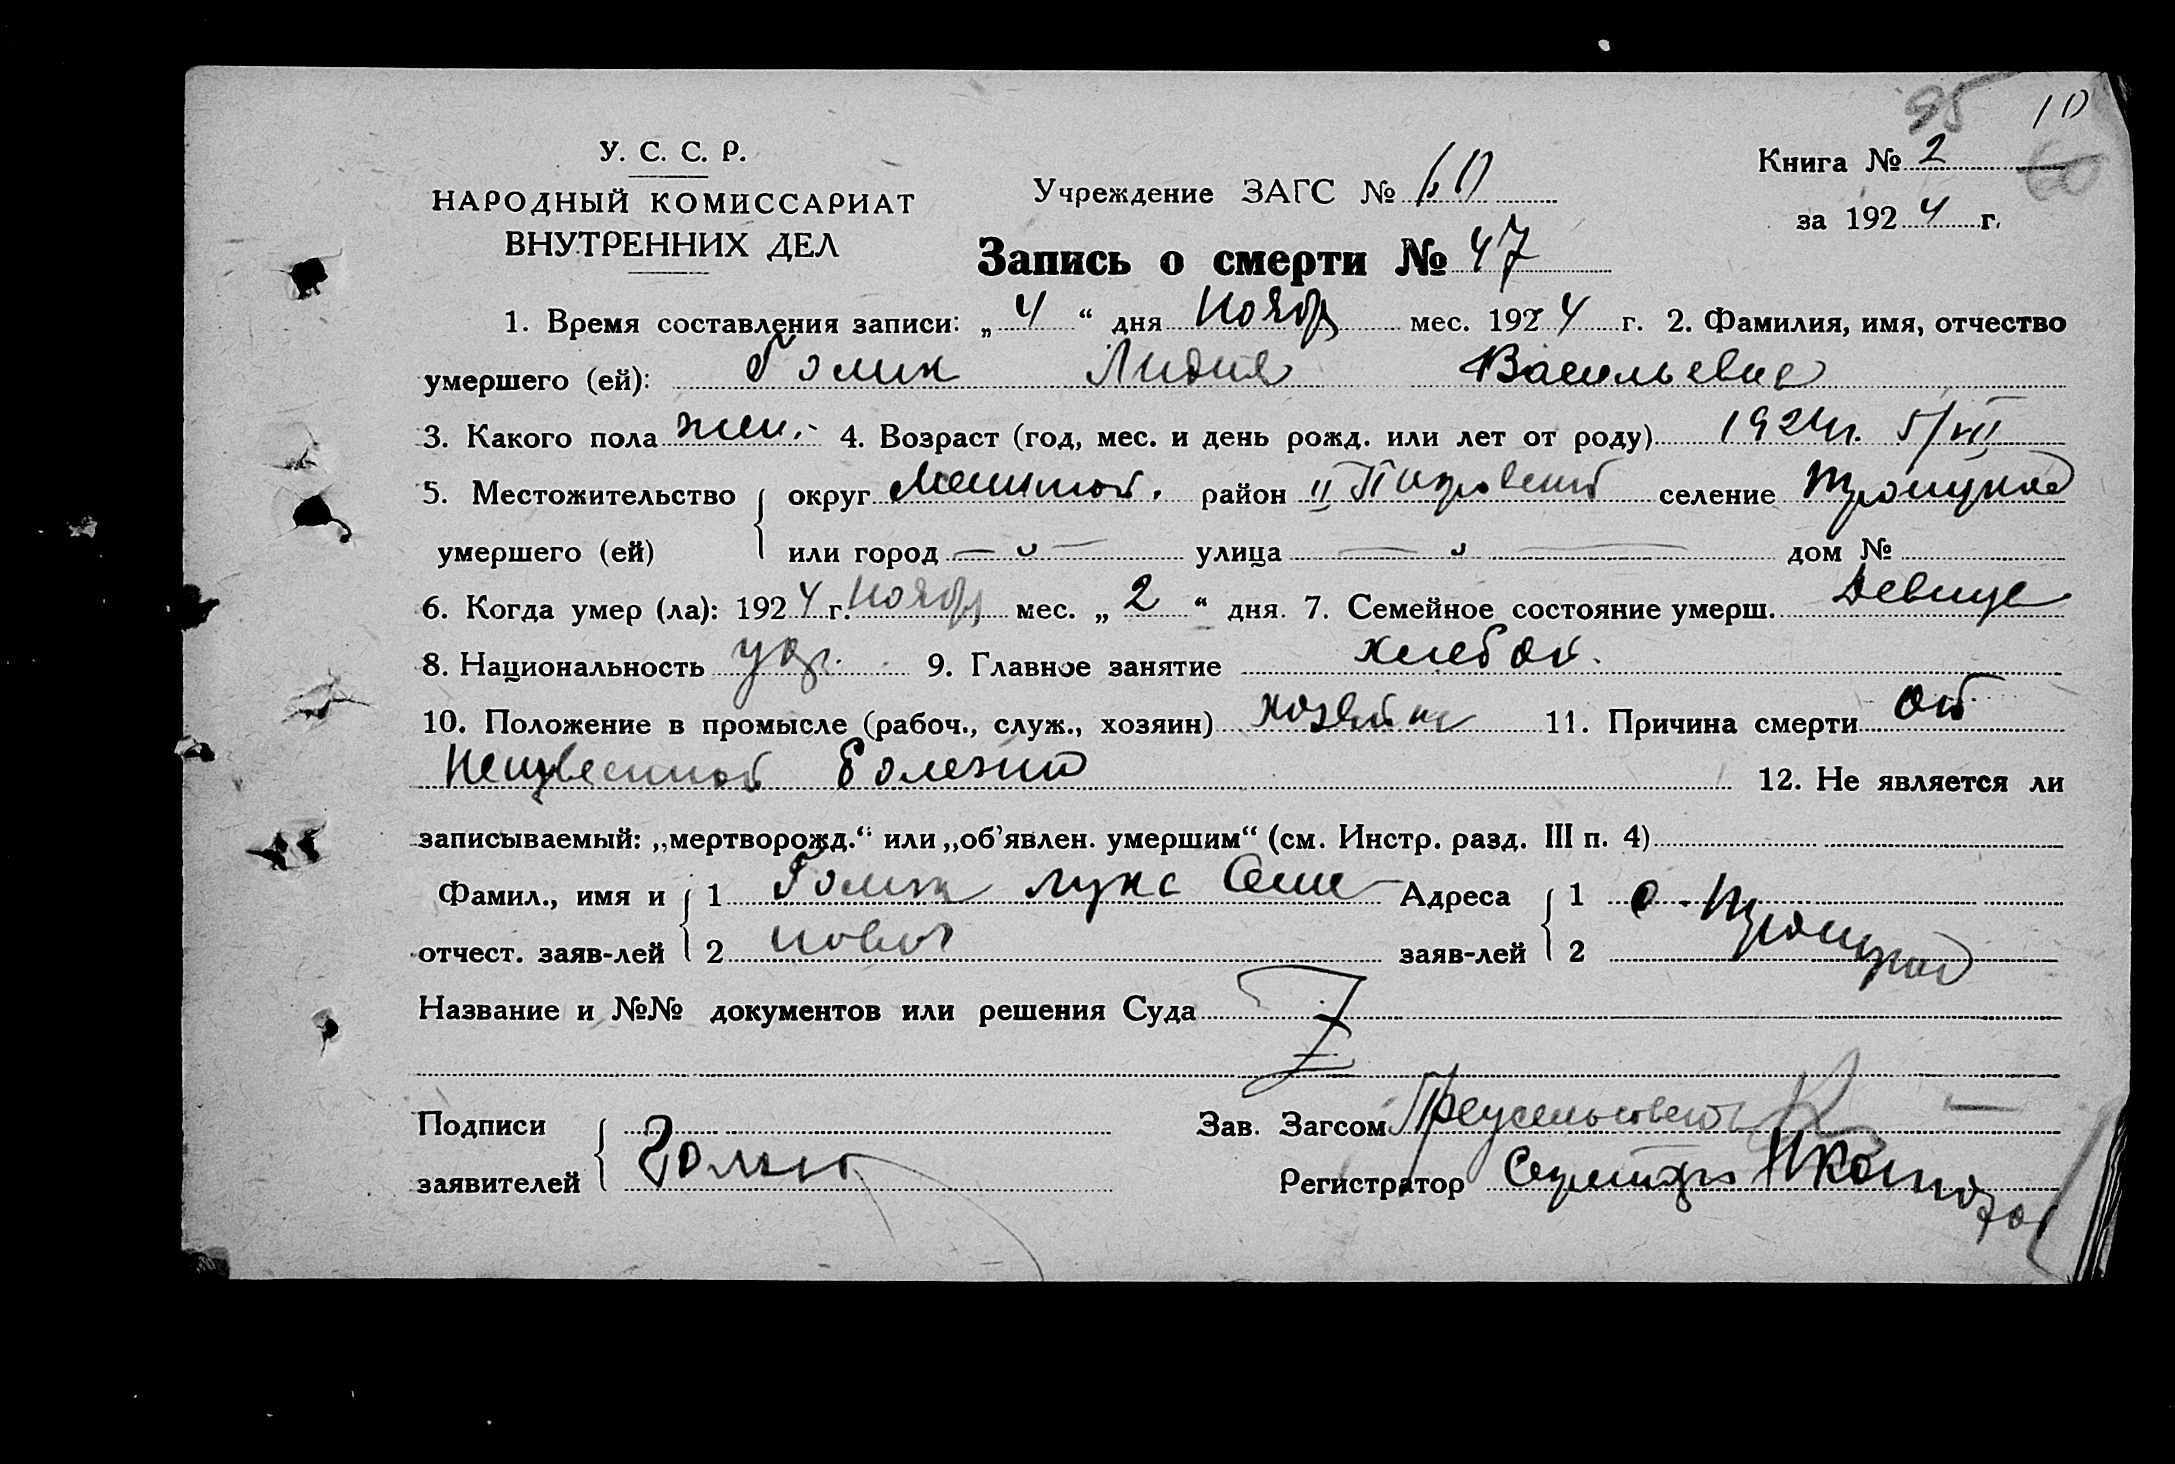 95 10
У. С. С. Р.
НАРОДНЫЙ КОМИССАРИАТ
ВНУТРЕННИХ ДЕЛ
Учреждение ЗАГС №
Книга № 2 60
за 1924 г.
Запись о смерти № 47
1. Время составления записи: „ 4 “ дня Нояб мес. 1924 г. 2. Фамилия, имя, отчество
умершего (ей): Голик Лидия Васильевна
3. Какого пола жен. 4. Возраст (год, мес. и день рожд. или лет от роду) 1924г. 5/VII
5. Местожительство округ район II селение Троицкое
умершего (ей) или город — " — улица — " — дом №
6. Когда умер (ла): 1924 г. Нояб мес. „ 2 “ дня. 7. Семейное состояние умерш. Девица
8. Национальность укр. 9. Главное занятие хлебоп.
10. Положение в промысле (рабоч., служ., хозяин) хозяин 11. Причина смерти от
Неизвестной болезни 12. Не является ли
записываемый: „мертворожд.“ или „об’явлен. умершим“ (см. Инстр. разд. III п. 4)
Фамил., имя и 1 Голик Лука Семе- Адреса 1 с. Троицкое
отчест. заяв-лей 2 нович заяв-лей 2
Название и №№ документов или решения Суда
Подписи Зав. Загсом Предсельсовета
заявителей Голик Регистратор Секретарь